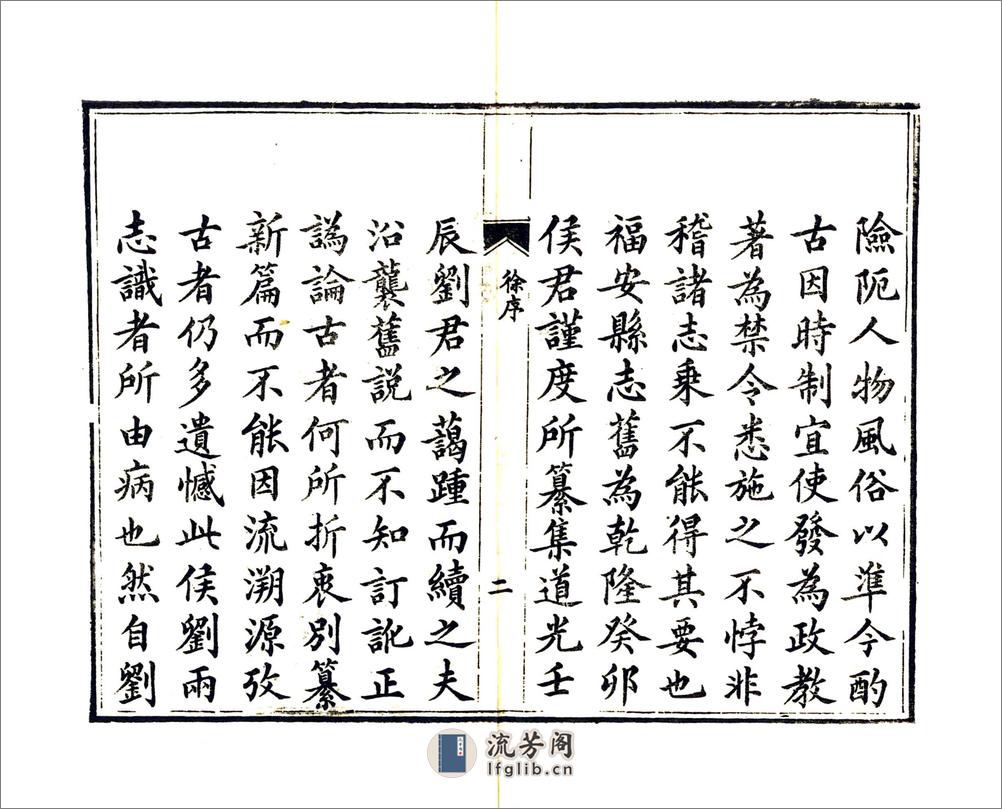 險阨人物風俗以準今酌
古因時制宜使發為政教
著為禁令悉施之不悖非
稽諸志乘不能得其要也
福安縣志舊為乾隆癸卯
侯君謹度所纂集道光壬
徐序
二
辰劉君之藹踵而續之夫
沿襲舊說而不知訂訛正
譌論古者何所折衷別纂
新篇而不能因流溯源攷
古者仍多遺憾此侯劉兩
志識者所由病也然自劉
流芳阁
lfglib.cn